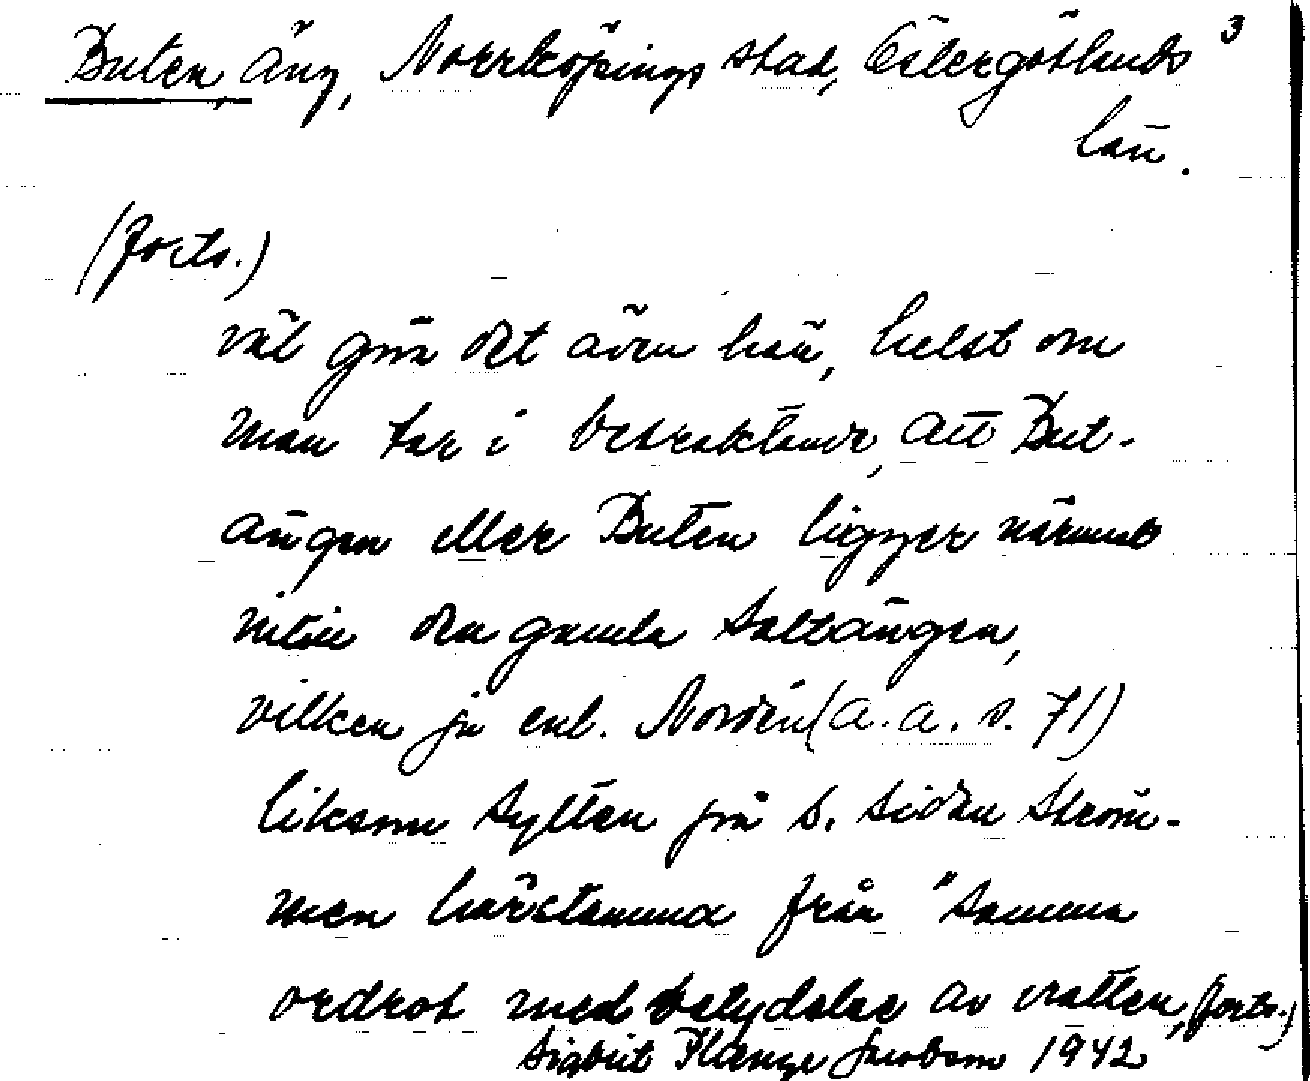 Buten, äng, Norrköpings stad, Östergötlands 3
län.
(forts.)
väl göra det även här, helst om
man tar i betraktande, att But-
ängen eller Buten ligger närmast
intill den gamla Saltängen,
vilken ju enl. Nordén (a. a. s. 71)
liksom Sylten på s. sidan Ström-
men härstamma från "samma
ordrot med betydelse av vatten, (forts.)
Sigbrit Plænge Jacobson 1942